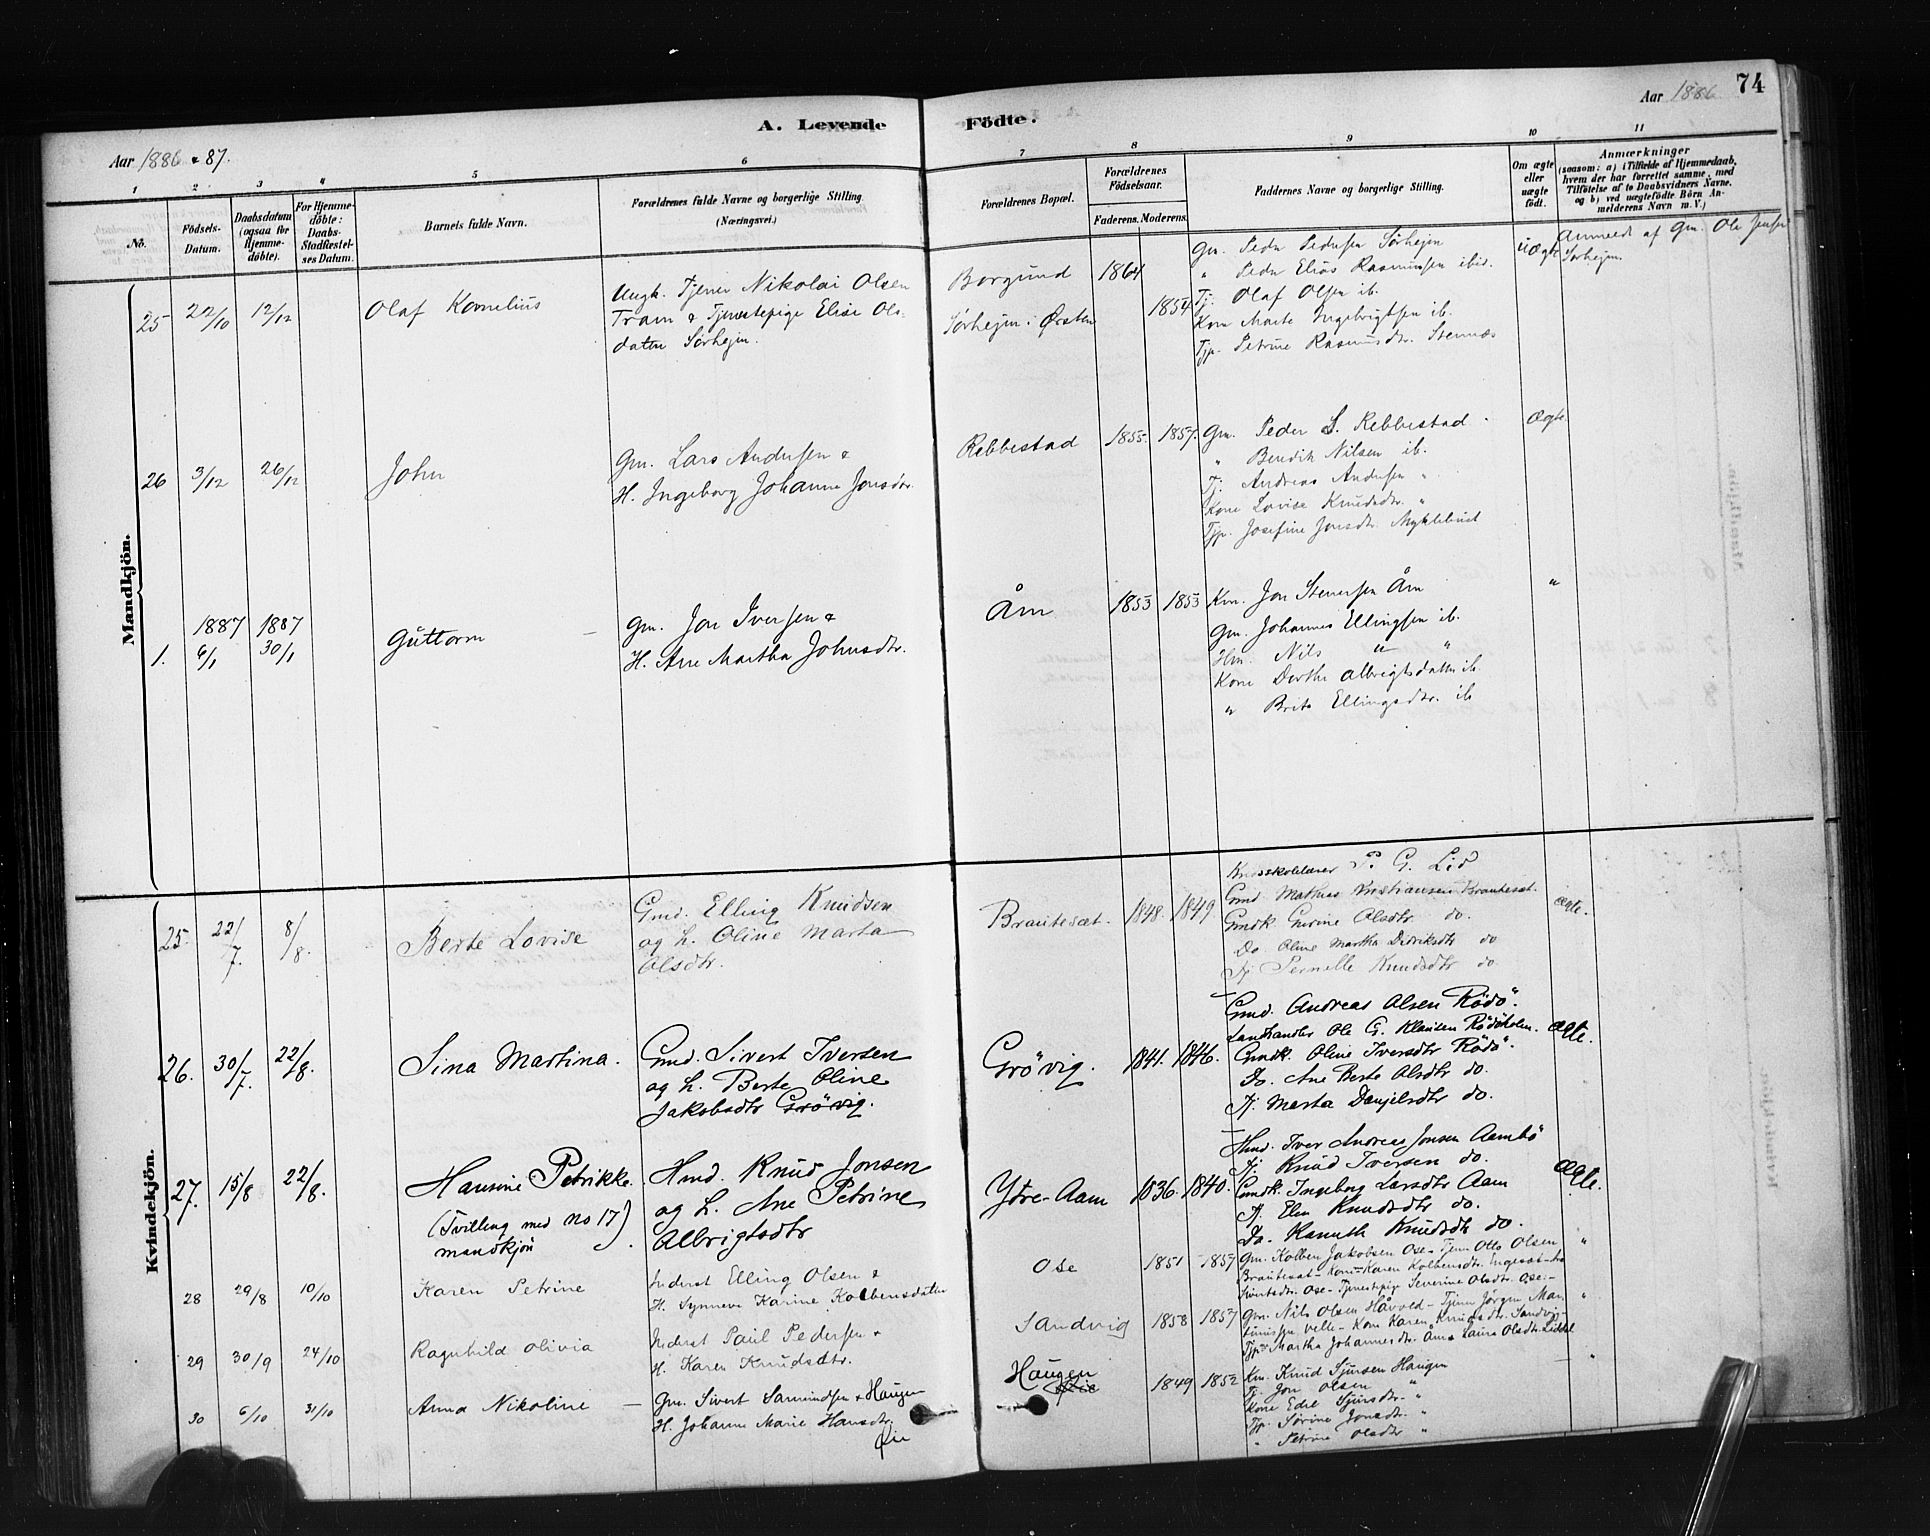 74
Aar 1886
A. Levende Födte.
Aar 1886 & 87.
1 2 3 4 5 6 7 8 9 10 11
No.
Födsels-Datum.
Daabsdatum (ogsaa for Hjemme-döbte).
For Hjemme-döbte: Daabs-Stadfæstel-ses Datum.
Barnets fulde Navn.
Forældrenes fulde Navne og borgerlige Stilling (Næringsvei.)
Forældrenes Bopæl.
Forældrenes Födselsaar.
Faderens. Moderens.
Faddernes Navne og borgerlige Stilling.
Om ægte eller uægte födt.
Anmærkninger
(saasom: a) i Tilfælde af Hjemmedaab,
hvem der har forrettet samme, med
Tilföielse af to Daabsvidners Navne,
og b) ved uægtefödte Börn An-
melderens Navn m. V.)
Mandkjön.
25 22/10 12/12 Olaf Kornelius
Ungk. Tjener Nikolai Olsen
Tran & Tjenestepige Elise Ols-
datter Sørhejm.
Borgund 1864
Sørhejm i Ørsten 1854
Gm. Peder Pedersen Sørhejm
" Peder Elias Rasmussen ibid.
Tj. Olaf Olsen ib.
Kone Marte Ingebrigtsen ib.
Tjp. Petrine Rasmusdtr. Stennæs
uægte
Anmeldt af Gm. Ole Jensen
Sørhejm
26 3/12 26/12 John
Gm. Lars Andersen &
H. Ingeborg Johanne Jonsdtr.
Rebbestad 1855. 1857.
Gm. Peder S. Rebbestad
" Bendik Nilsen ib.
Tj. Andreas Andersen "
Kone Lovise Knudsdtr. "
Tjp. Josefine Jonsdtr. Myklebust
Ægte
1887 1887
1. 6/1 30/1 Guttorm
Gm. Jon Iversen &
H. Ane Martha Johnsdtr.
Åm 1853 1853
Km. Jon Stenersen Åm
Gm. Johannes Ellingsen ib.
Hm. Nils " "
Kone Dorthe Albrigtsdatter ib.
" Brite Ellingsdtr. ib
"
Kvindekjön.
25 22/7. 8/8. Berte Lovise
Gmd. Elling Knudsen
og h. Oline Marta
Olsdtr.
Brautesæt. 1848. 1849.
P. G. Lid
Gmd. Mathias Kristiansen Brautesæt.
Gmdk Gurine Olsdtr do.
Do Oline Martha Didriksdtr do
Tj Pernelle Knudsdtr do
ægte.
26. 30/7. 22/8. Sina Martina.
Gmd. Sivert Iversen
og h. Berte Oline
Jakobsdtr Grövig.
Grövig. 1841. 1846.
Gmd. Andreas Olsen Rödö.
Landhandler Ole G. Klausen Rödöholm.
Gmdk. Oline Iversdtr Rödö.
Do. Ane Berte Olsdtr do.
Tj. Marta Danjelsdtr do.
ægte.
27. 15/8 22/8. Hansine Petrikke.
(Tvilling med no 17)
mandkjön
Hmd. Knud Jonsen
og h. Ane Petrine
Albrigtsdtr
Ytre-Aam 1836. 1840.
Hmd. Iver Andreas Jonsen Aambö
Tj. Knud Iversen do.
Gmdk. Ingeborg Larsdtr Aam
Tj. Elen Knudsdtr do.
Do. Ranuth Knudsdtr do.
ægte.
28 29/8 10/10 Karen Petrine
Inderst Elling Olsen &
H. Synneve Karine Kolbensdatter
Ose 1851 1857
Gm. Kolben Jakobsen Ose - Tjener Otto Olsen
Brautesæt - Kone Karen Kolbensdtr.
Ose - Tjenestepige Severine Olsdtr. Ose. -
"
29 30/9 24/10 Ragnhild Olivia
Inderst Paul Pedersen &
H. Karen Knudsdtr.
Sandvig 1858 1857
Gm. Nils Olsen Håvold - Tjener Jørgen Mar-
Velle - Kone Karen Knudsdtr. Sandvig -
Tjp. Martha Johannesdtr. Åm & Laura Olsdtr.
"
30 6/10 31/10 Anna Nikoline
Gm. Sivert Samundsen & Haugen
H. Johanne Marie Hansdtr.
Øie
Haugen
Øie
1849 1852
Km. Knud Sjursen Haugen
Tj. Jon Olsen "
Kone Edel Sjursdtr. "
Tjp. Sørine Jonsdtr. "
" Petrine Olsdtr "
"